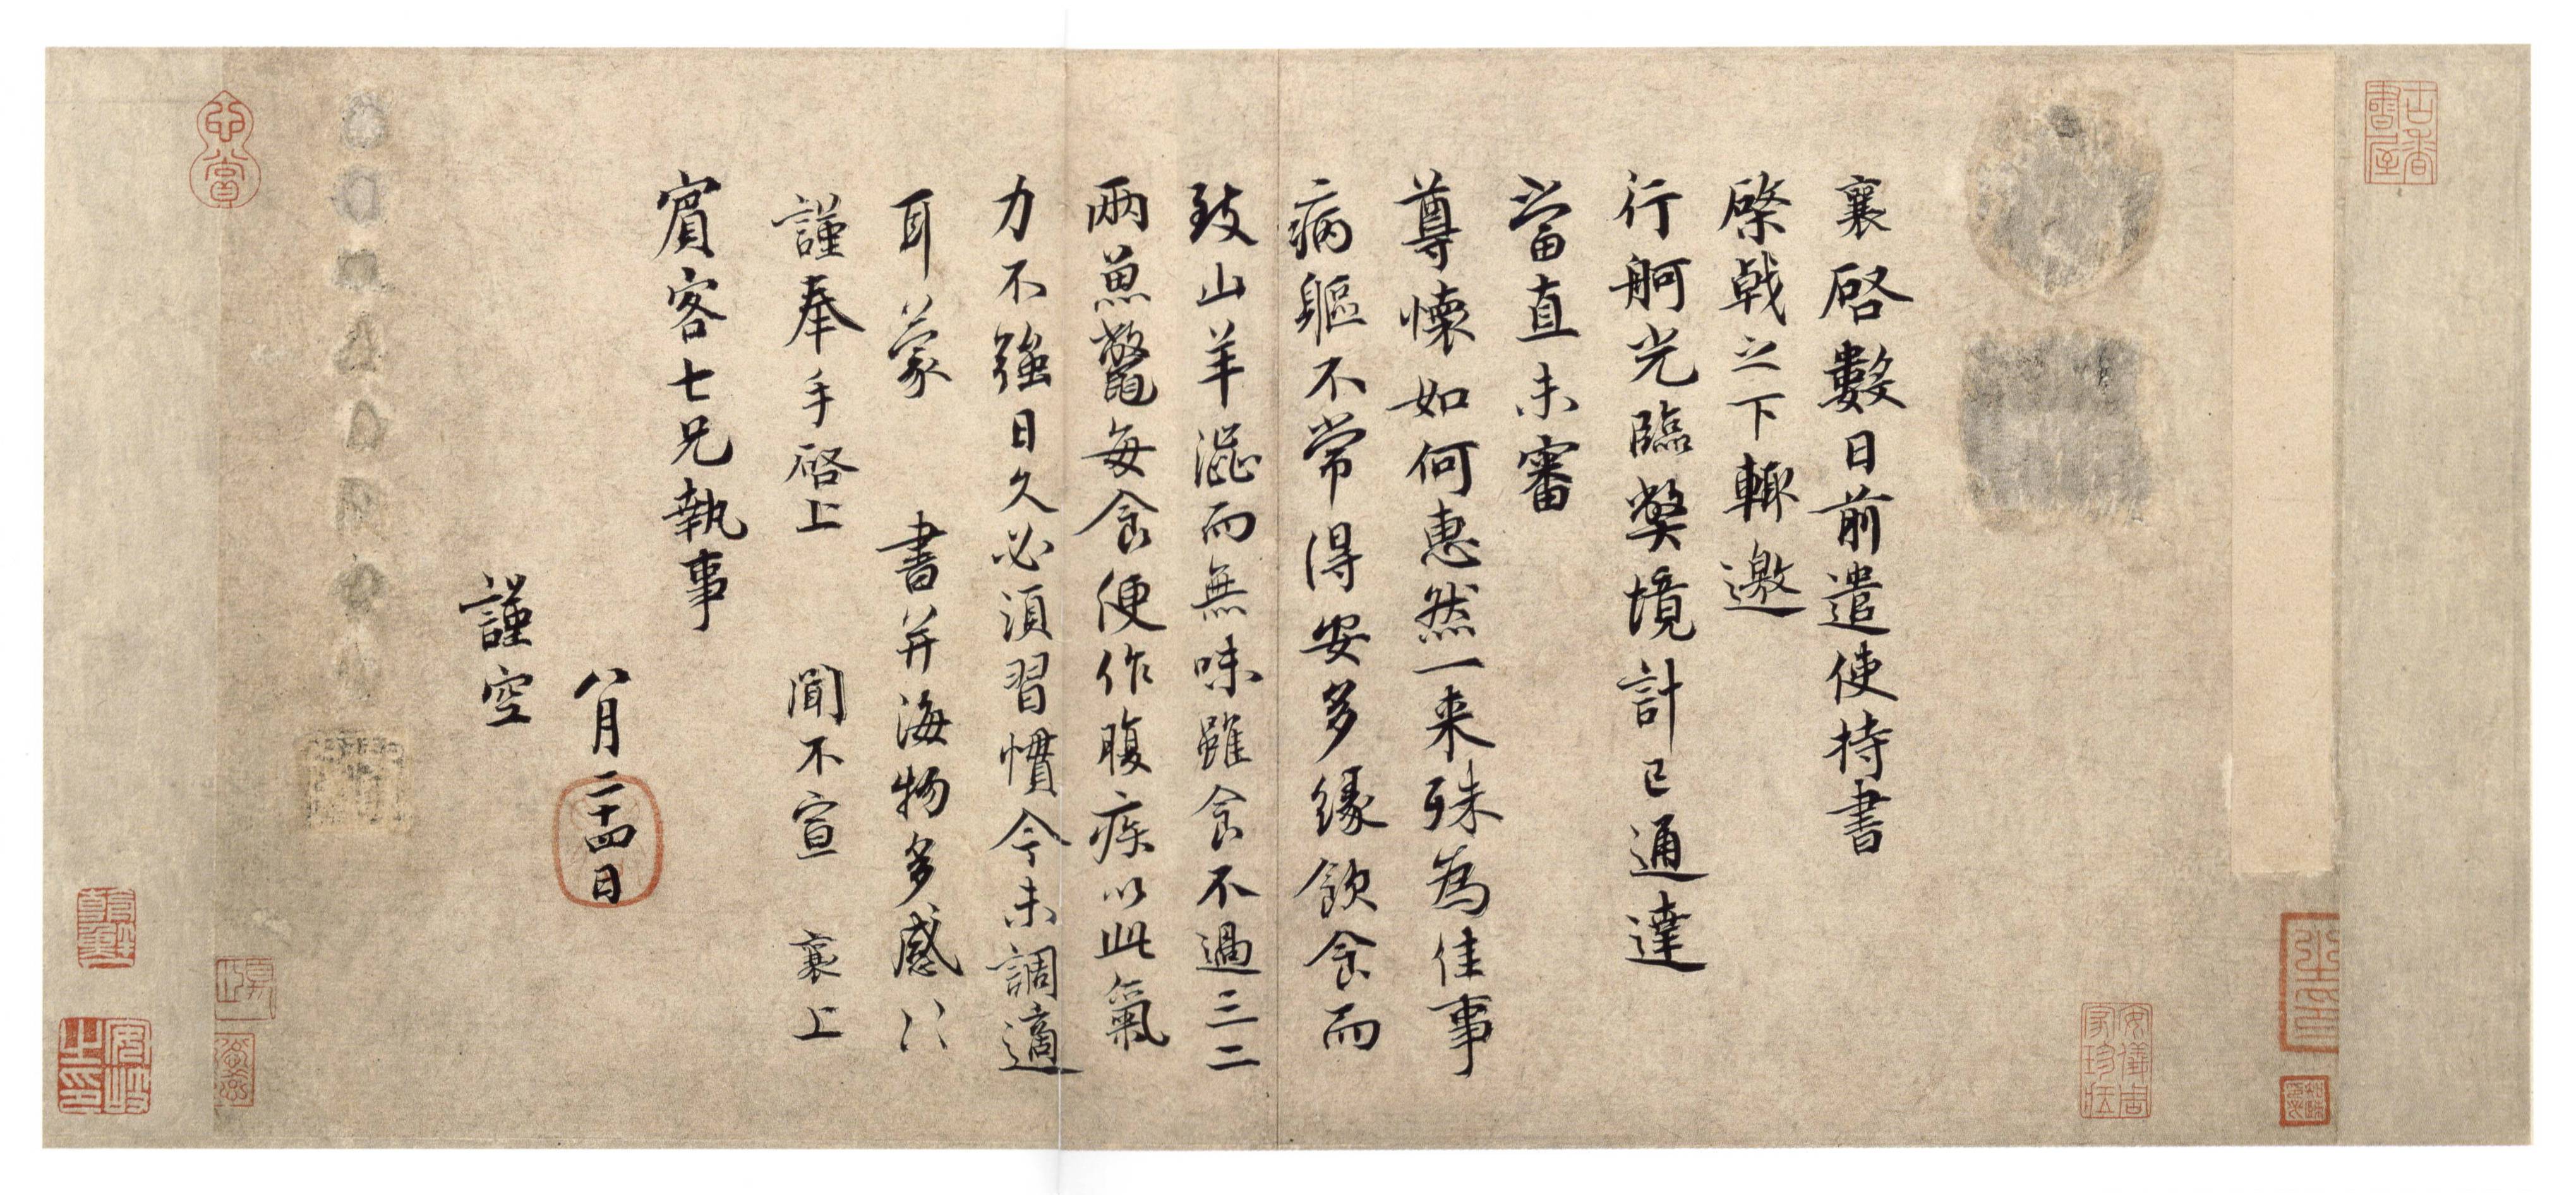 襄啓數日前遣使持書
棨戟之下輙邀
行舸光臨獘境計已通達
當直未審
尊懷如何惠然一来殊為佳事
病軀不常得安多緣飲食而
致山羊澀而無味雖食不過三二
兩魚鼈每食便作腹疾以此氣
力不強日久必須習慣今未調適
耳蒙 書并海物多感〻
謹奉手啓上 聞不宣 襄上
賓客七兄執事
八月二十四日
謹空
古香書屋
安儀周家珍藏
安岐之印